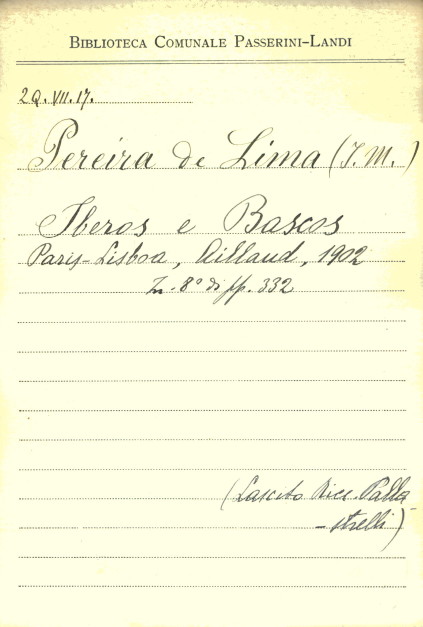 BIBLIOTECA COMUNALE PASSERINI-LANDI
2Q. VII. 17.
Pereira de Lima (J. M.)
Iberos e Bascos
Paris-Lisboa, Aillaud, 1902
In-8° di pp. 332
(Lascito Nicc. Palla
-strelli)